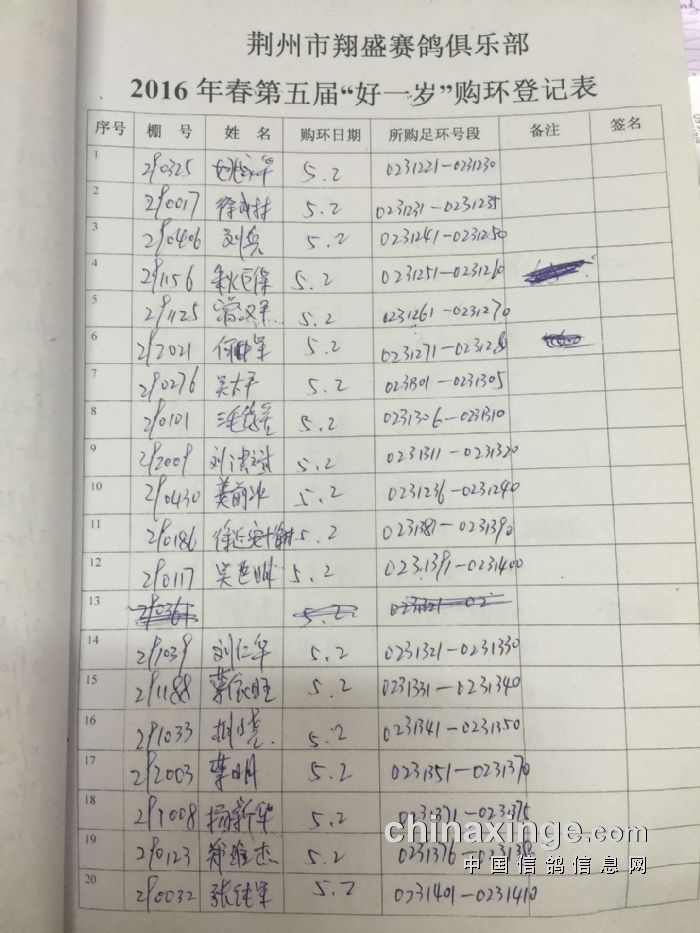 荆州市翔盛赛鸽俱乐部
2016年春第五届“好一岁”购环登记表
序号 棚号 姓名 购环日期 所购足环号段 备注 签名
1 290325 5.2 0231221-0231230
2 290017 5.2 0231231-0231235
3 290406 刘兵 5.2 0231241-0231250
4 291156 5.2 0231251-0231260
5 291125 5.2 0231261-0231270
6 292021 5.2 0231271-0231280
7 290276 吴太平 5.2 0231301-0231305
8 290101 5.2 0231306-0231310
9 292009 刘洪斌 5.2 0231311-0231320
10 290430 5.2 0231236-0231240
11 290186 5.2 0231381-0231390
12 290117 5.2 0231391-0231400
13
14 291039 刘仁华 5.2 0231321-0231330
15 291188 5.2 0231331-0231340
16 291033 5.2 0231341-0231350
17 292003 5.2 0231351-0231370
18 291008 杨新华 5.2 0231371-0231375
19 290123 郑维杰 5.2 0231376-0231380
20 290032 5.2 0231401-0231410
chinaxinge.com
中国信鸽信息网